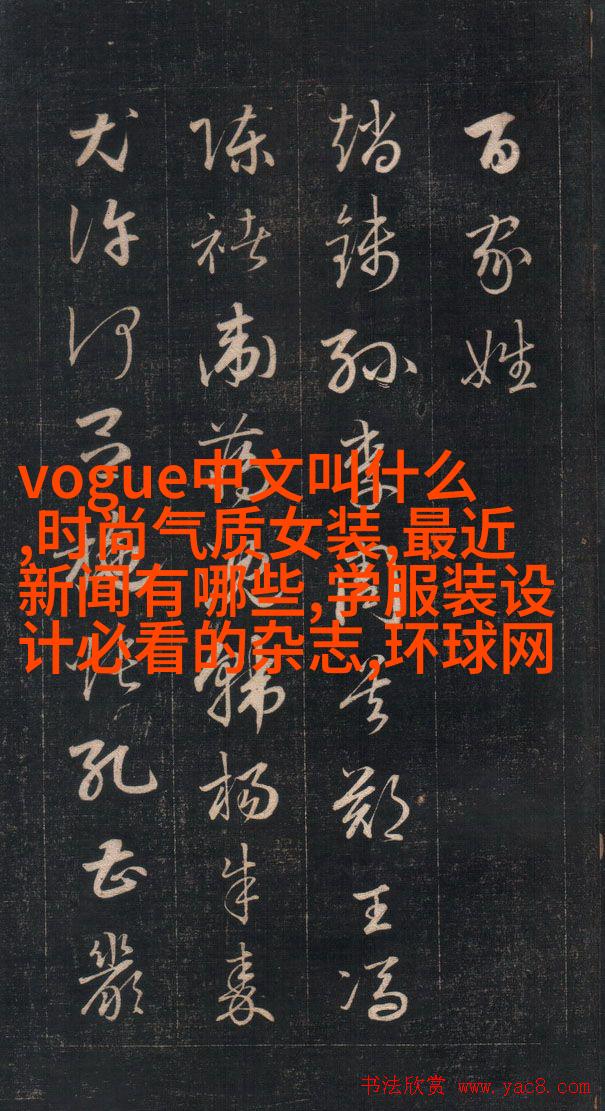 百家姓
趙錢孫李周吴鄭王馮
陳褚衛蒋沈韓楊朱秦
尤許何吕施張孔曹嚴
vogue中文叫什么
,时尚气质女装,最近
新闻有哪些,学服装设
计必看的杂志,环球网
书法欣赏 www.yac8.com